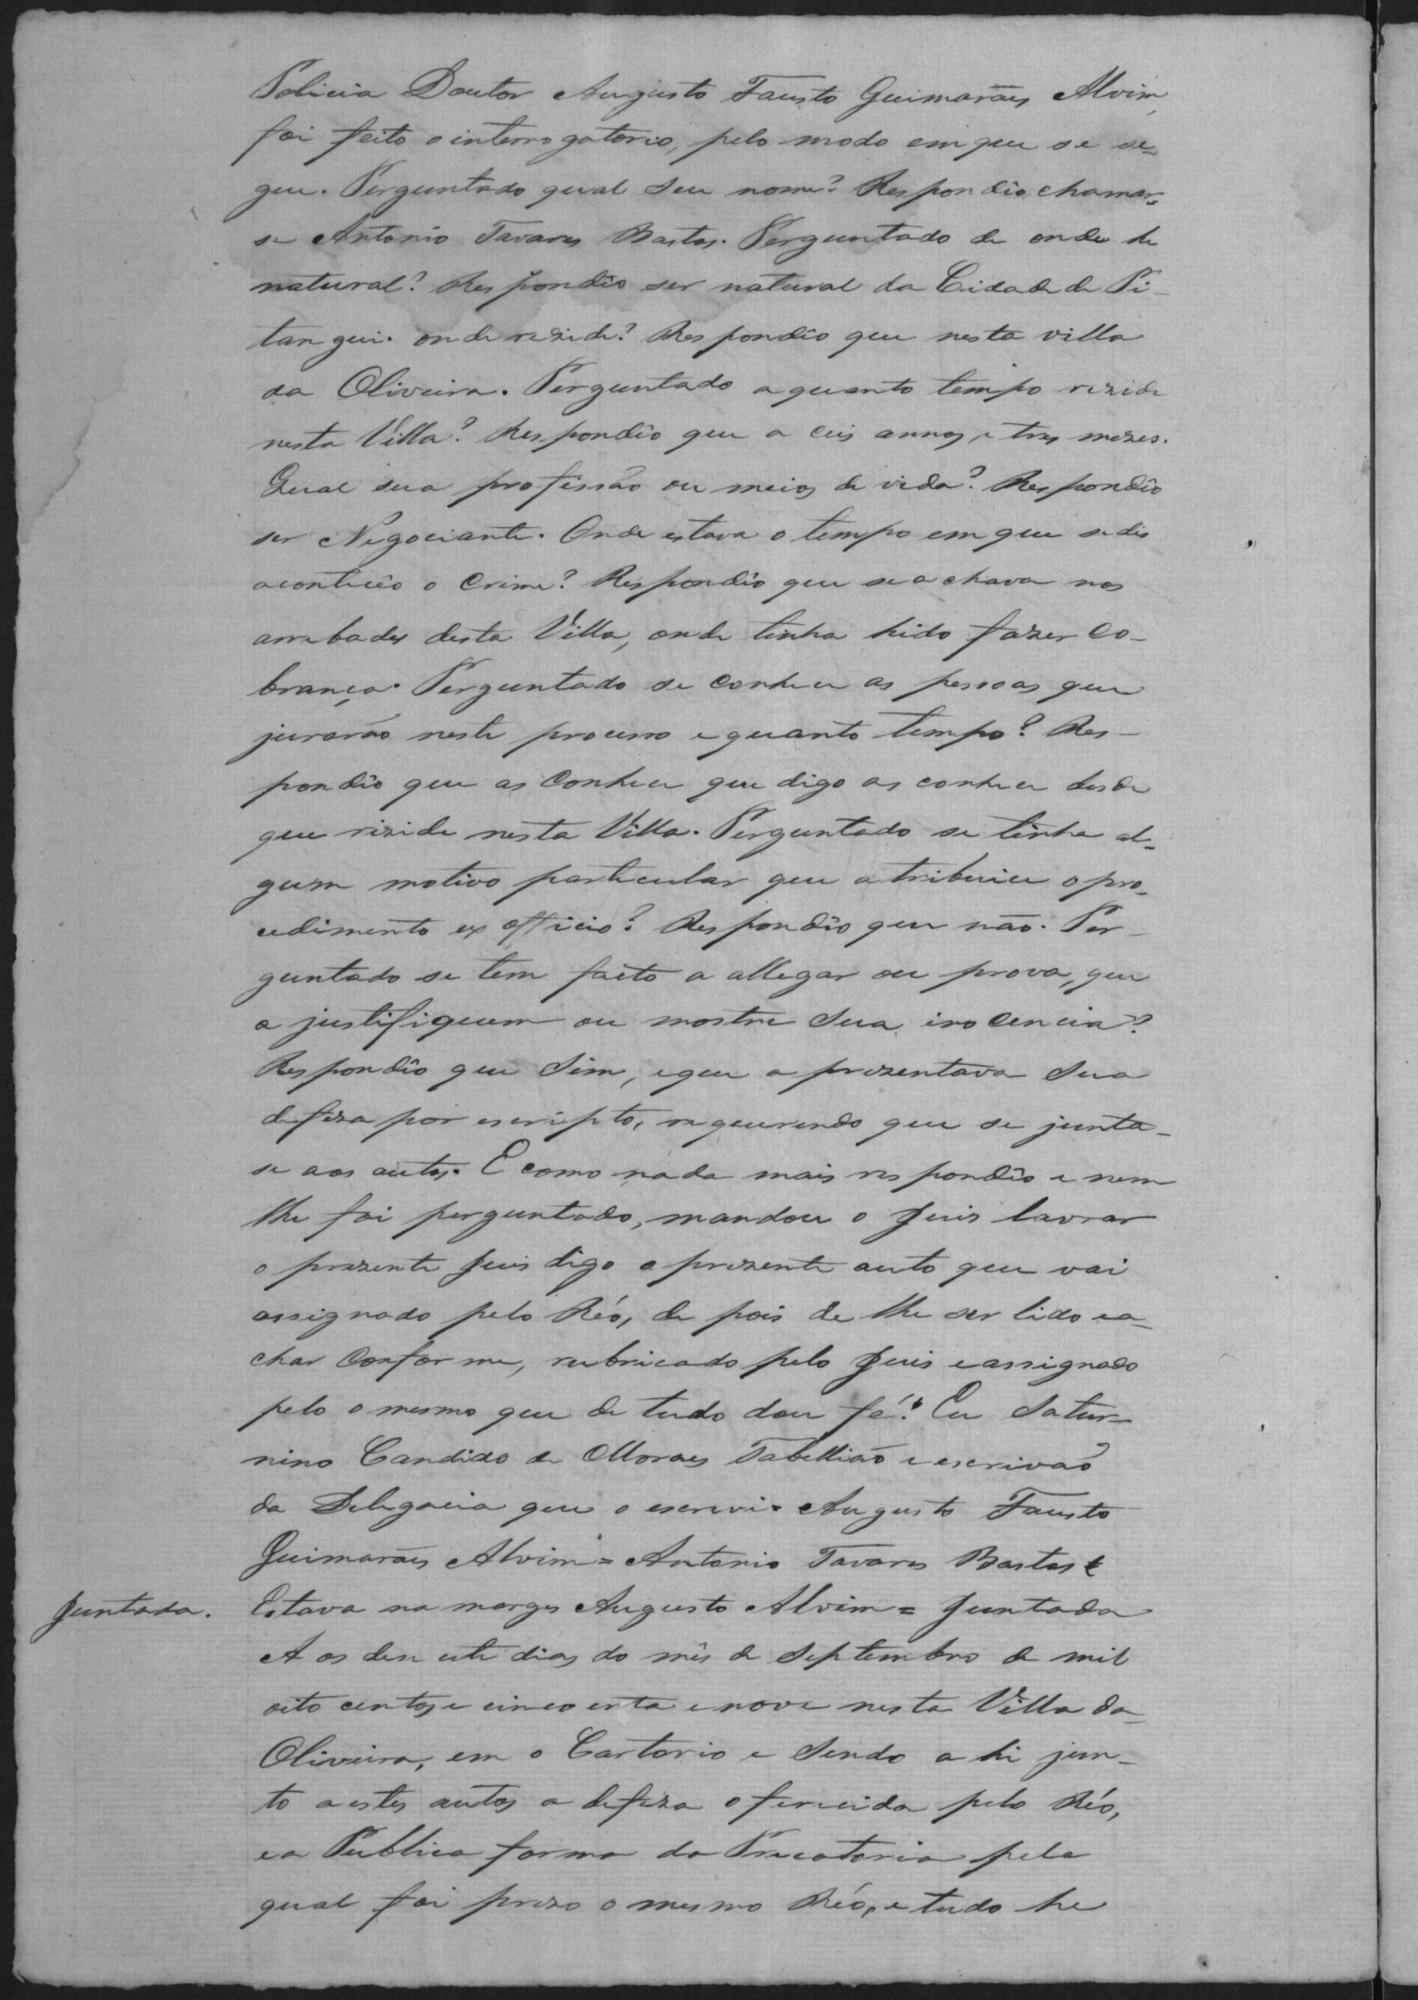 Policia Doutor Augusto Fausto Guimarães Alvim,
foi feito o interrogatorio, pelo modo em que se se=
gue. Perguntado qual seu nome? Respondio chamar=
se Antonio Tavares Bastos. Perguntado de onde he
natural? Respondio ser natural da Cidade de Pi-
tangui. onde rezide? Respondio que nesta villa
da Oliveira. Perguntado a quanto tempo rezide
nesta Villa? Respondio que a ceis annos, e tres mezes.
Qual sua profissão ou meios de vida? Respondio
ser Negociante. Onde estava o tempo em que se dis
aconteceo o Crime? Respondio que se achava nos
arrebades desta Villa, onde tinha hido fazer Co-
brança. Perguntado se conhece as pessoas que
jurarão neste processo e quanto tempo? Res-
pondio que as Conhece que digo as conhece desde
que rizide nesta Villa. Perguntado se tinha al=
gum motivo particular que atribuice o pro=
cedimento ex officio? Respondio que não. Per-
guntado se tem facto a allegar ou prova, que
o justifiquem ou mostre sua inocencia?
Respondio que Sim, e que aprezentava Sua
defiza por escripto, requerendo que se junta-
se aos autos. E como nada mais respondio e nem
lhe foi perguntado, mandou o Juis lavrar
o prezente Juis digo o prezente auto que vai
assignado pelo Réo, de pois de lhe ser lido e a=
char Conforme, rubricado pelo Juis e assignado
pelo o mesmo que de tudo dou fé. Eu Satur-
nino Candido de Moraes Tabellião e escrivão
da Delegacia que o escrevi. Augusto Fausto
Guimarães Alvim = Antonio Tavares Bastos
Juntada. Estava na marge Augusto Alvim = Juntada
Aos desecete dias do mês de Septembro de mil
oito centos e cincoenta e nove nesta Villa da
Oliveira, em o Cartorio e Sendo ahi jun-
to a estes autos a defiza oferecida pelo Réo,
e a Publica forma da Precatoria pela
qual foi prezo o mesmo Réo, e tudo he